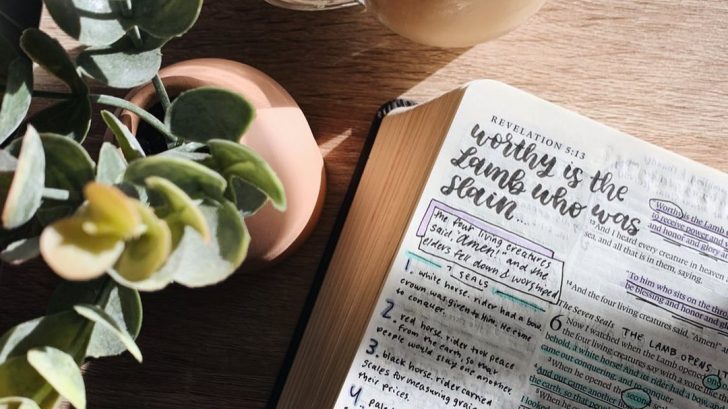 REVELATION 5:13
worthy is the
Lamb who was
slain...
the four living creatures
said, "Amen!" and the
elders fell down & worshiped
7 SEALS
1. white horse. rider had a bow,
crown was given to him, He came
to conquer.
2. red horse. rider took peace
from the earth, so that
people would slay one another
3. black horse. rider carried
scales for measuring grain
their prices.
4. pale
"Worthy is
to receive power and
and honor and glory
And I heard every creature in heaven
sea, and all that is in them, saying,
"To him who sits on the
be blessing and honor and
"And the four living creatures said, "Amen!"
The Seven Seals
THE LAMB OPENS
6 Now I watched when the Lamb
the four living creatures say with a voice
behold, a white horse! And its rider had a
came out conquering, and to
When he opened the second
out came another
the earth, so that people